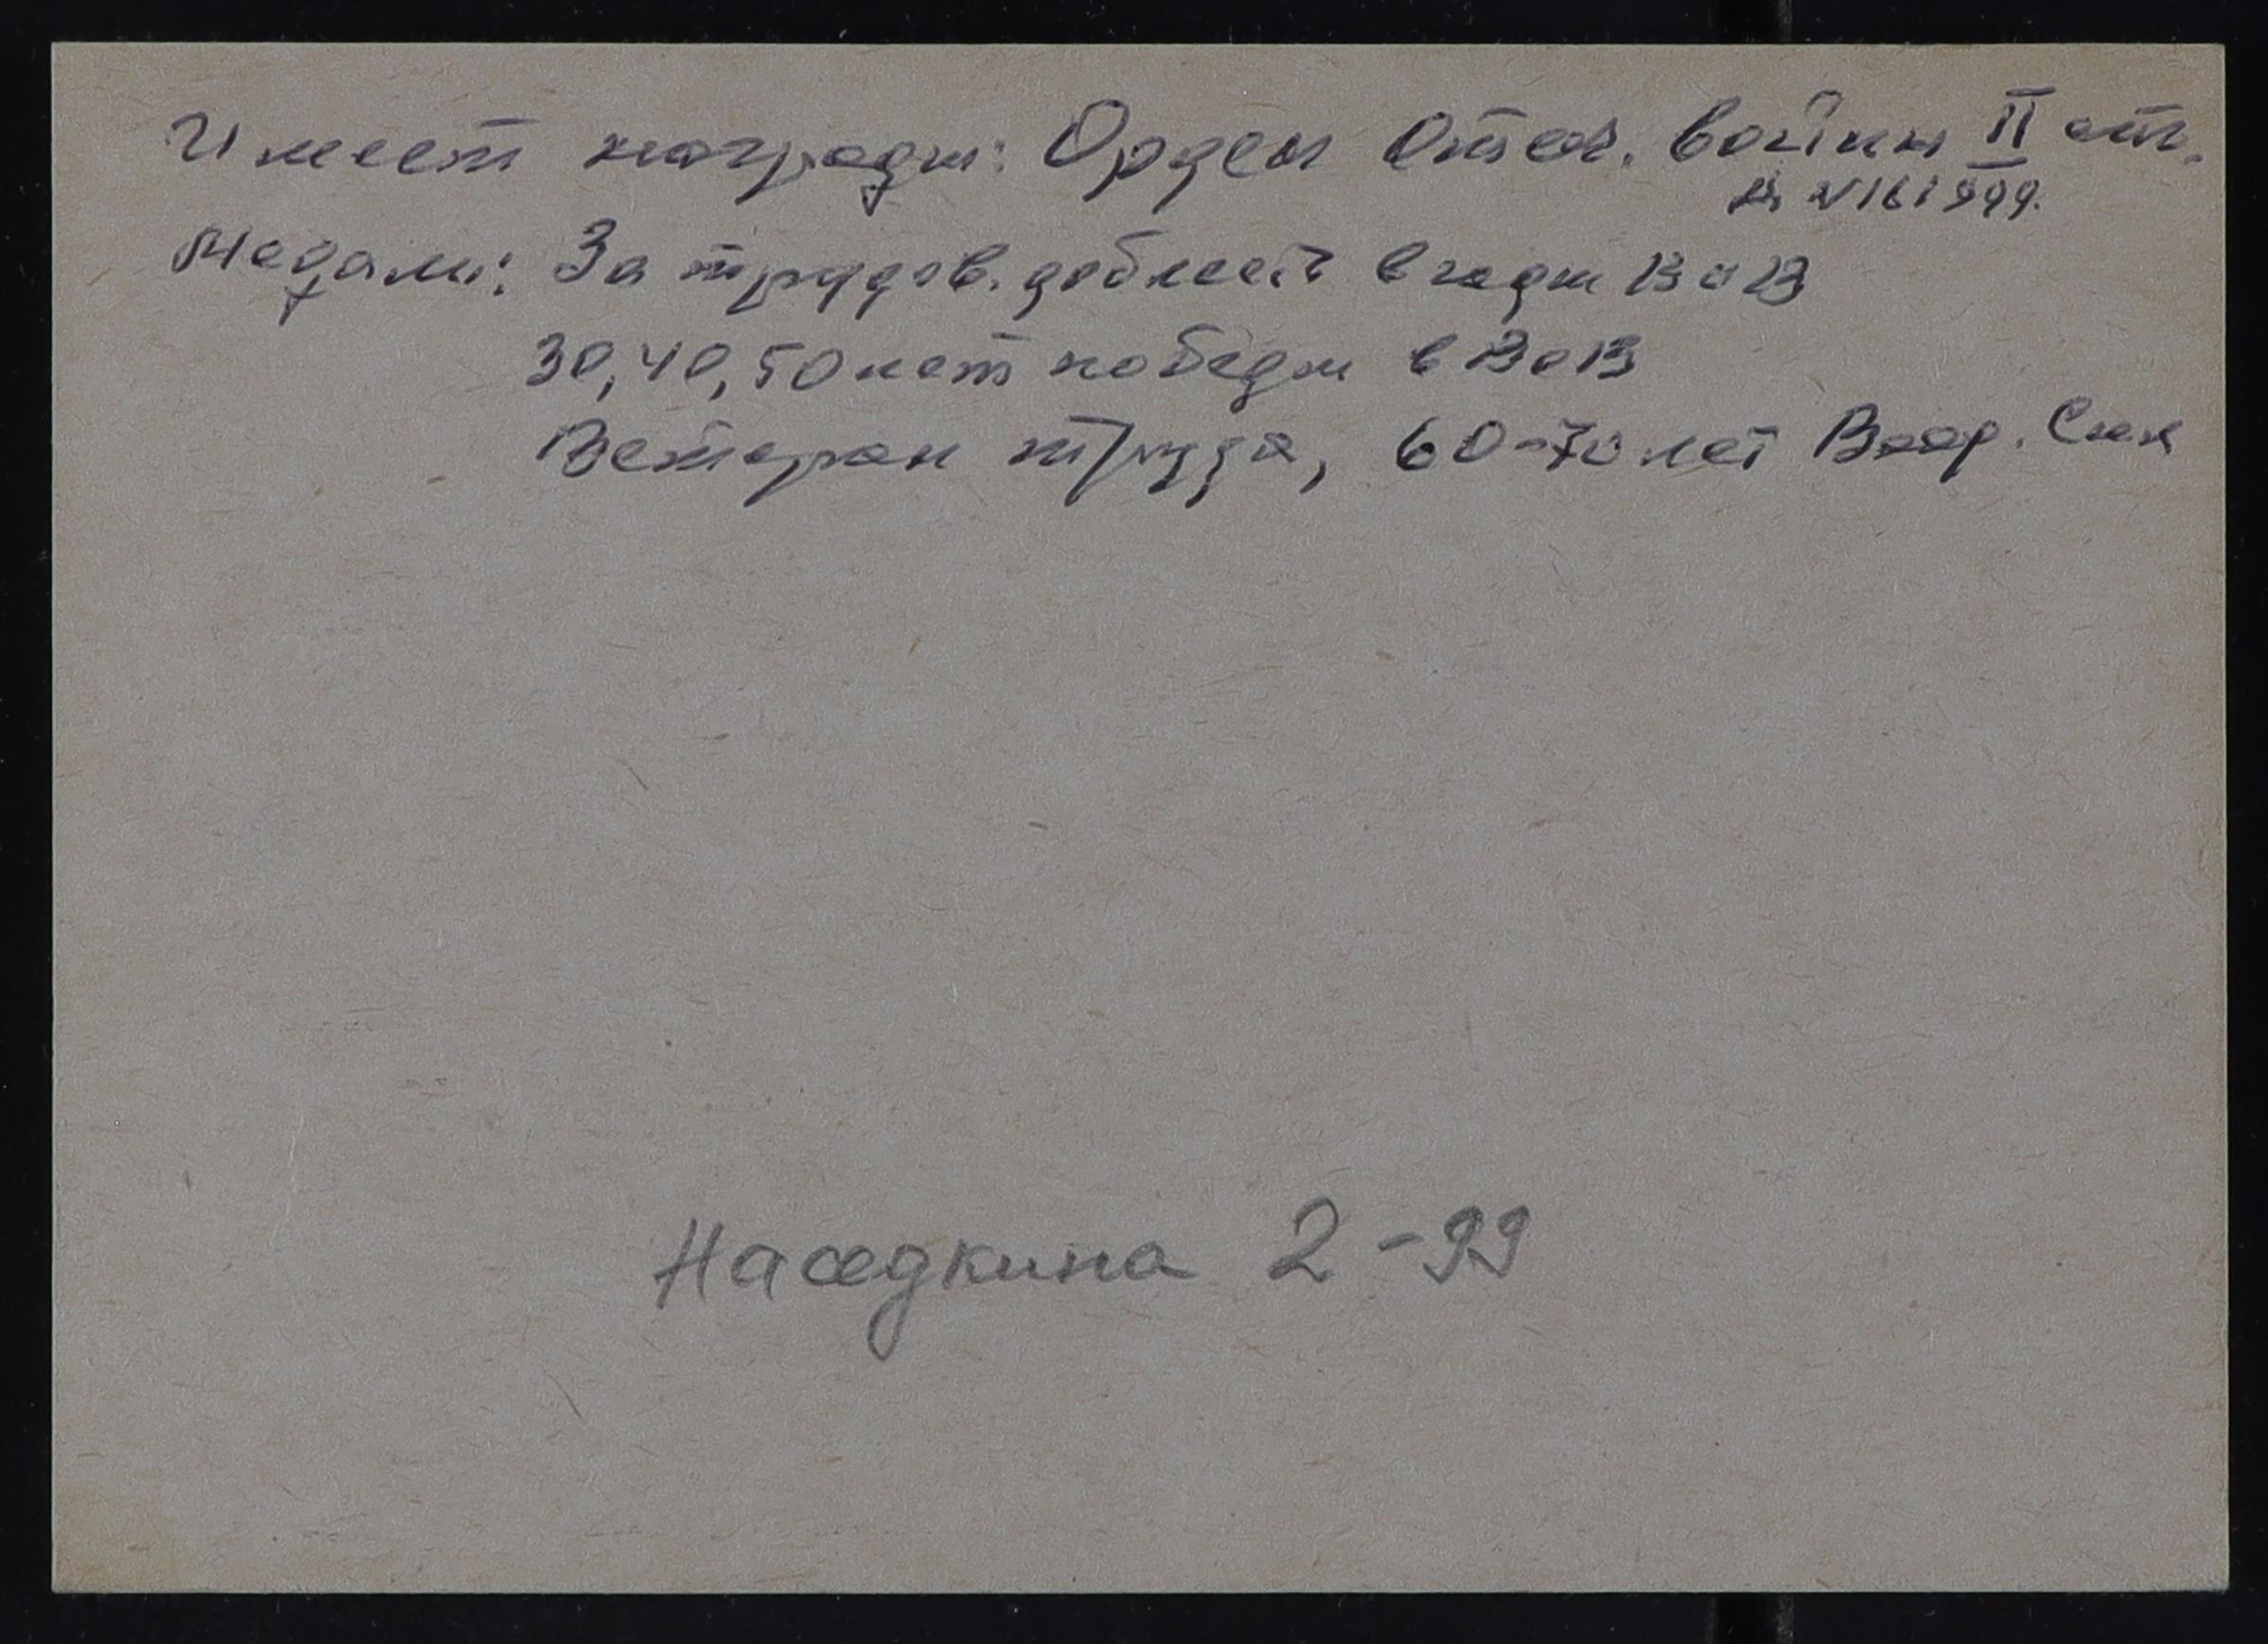 Имеет награды: Орден Отеч. войны II ст.
№161999.
Медали: За трудов. доблесть в годы ВОВ
30, 40, 50 лет победы в ВОВ
Ветеран труда, 60-70 лет Воор. Сил
Наседкина 2-99